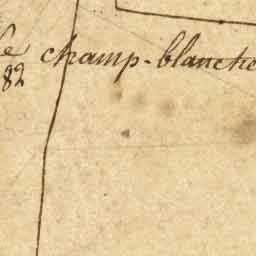 le champ-blanche
82